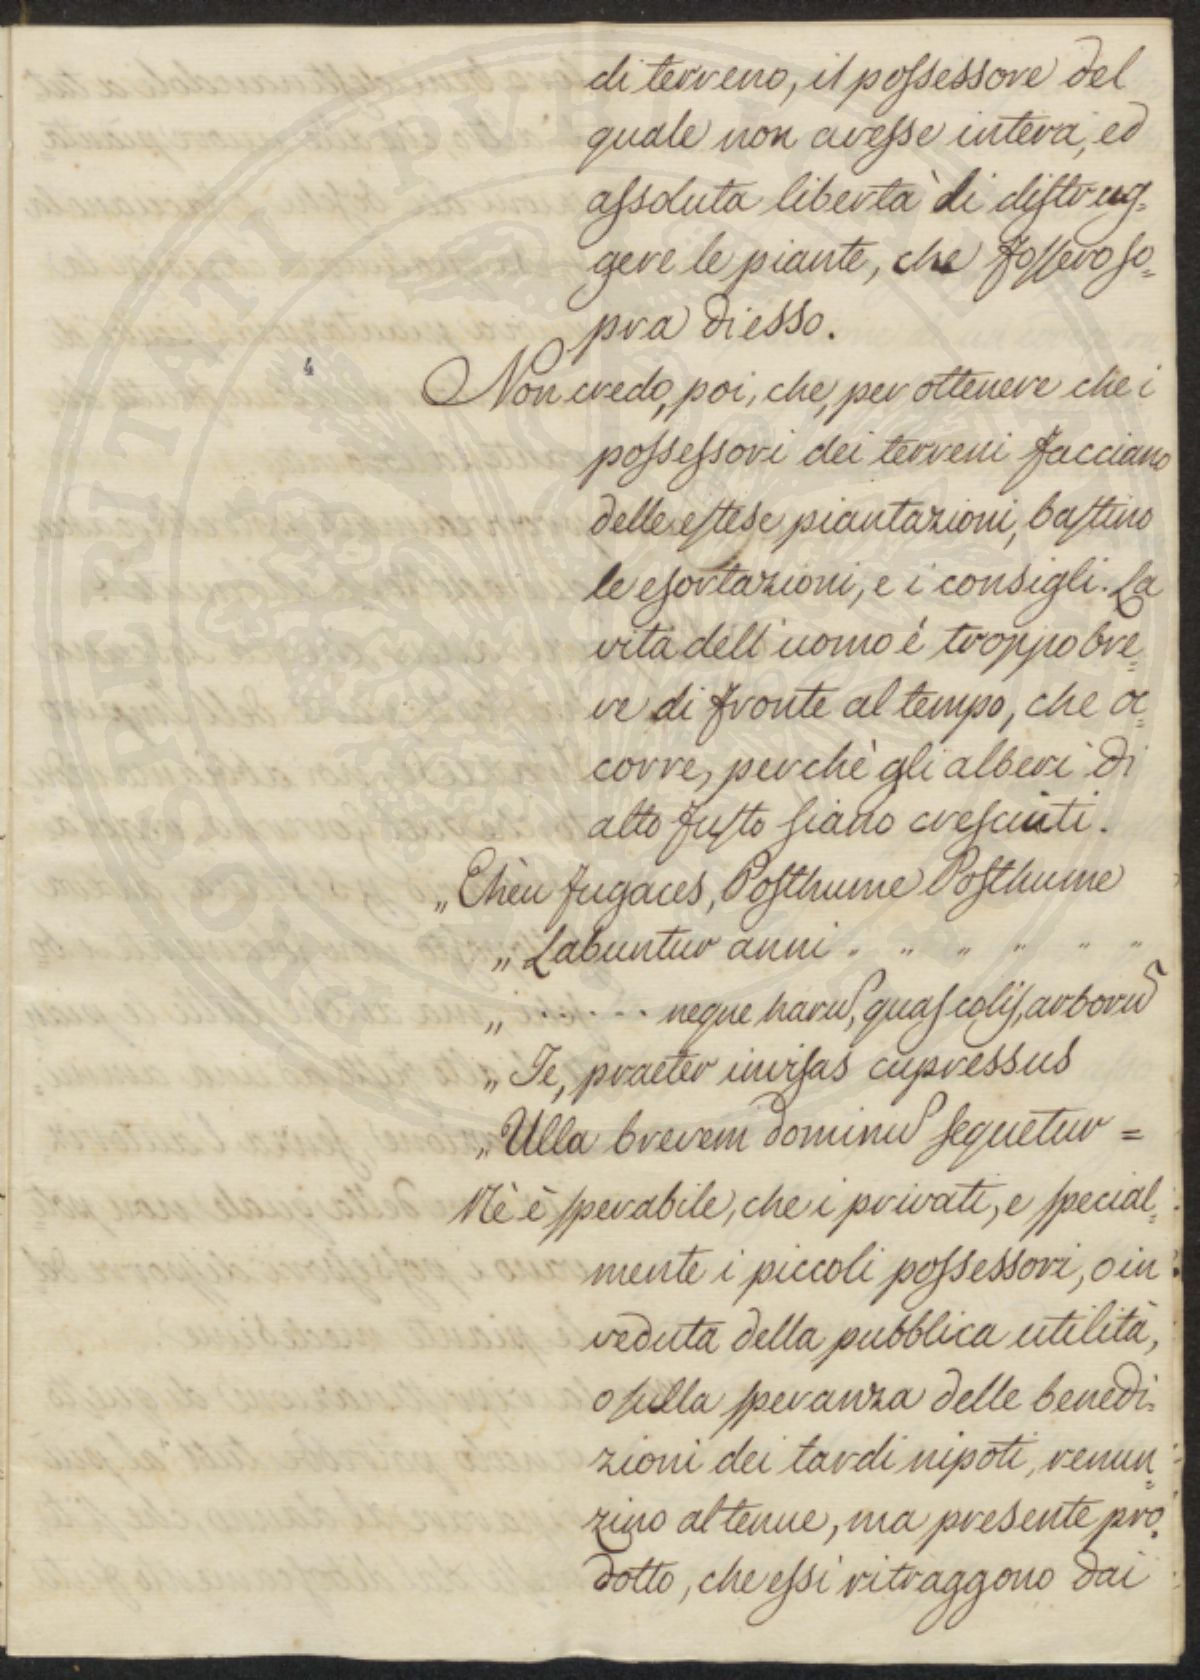 di terreno, il possessore del
quale non avesse intera, ed
assoluta libertà di distrug=
gere le piante, che fossero so=
pra di esso.
4
Non credo, poi, che, per ottenere che i
possessori dei terreni facciano
delle estese piantazioni, bastino
le esortazioni, e i consigli. La
vita dell'uomo é troppo bre=
ve di fronte al tempo, che oc=
corre, perchè gli alberi di
alto fusto siano cresciuti.
„ Ehèu fugaces, Posthume Posthume
„ Labuntur anni . „ „ „ „ „
„ . . . . . . neque harū, quas colis, arborū
„ Te, praeter invisas cupressus
„ Ulla brevem dominū sequetur =
Nè è sperabile, che i privati, e special=
mente i piccoli possessori, o in
veduta della pubblica utilità,
o sulla speranza delle benedi=
zioni dei tardi nipoti, renun=
zino al tenue, ma presente pro=
dotto, che essi ritraggono dai
PROSPERITATI PVBLICAE